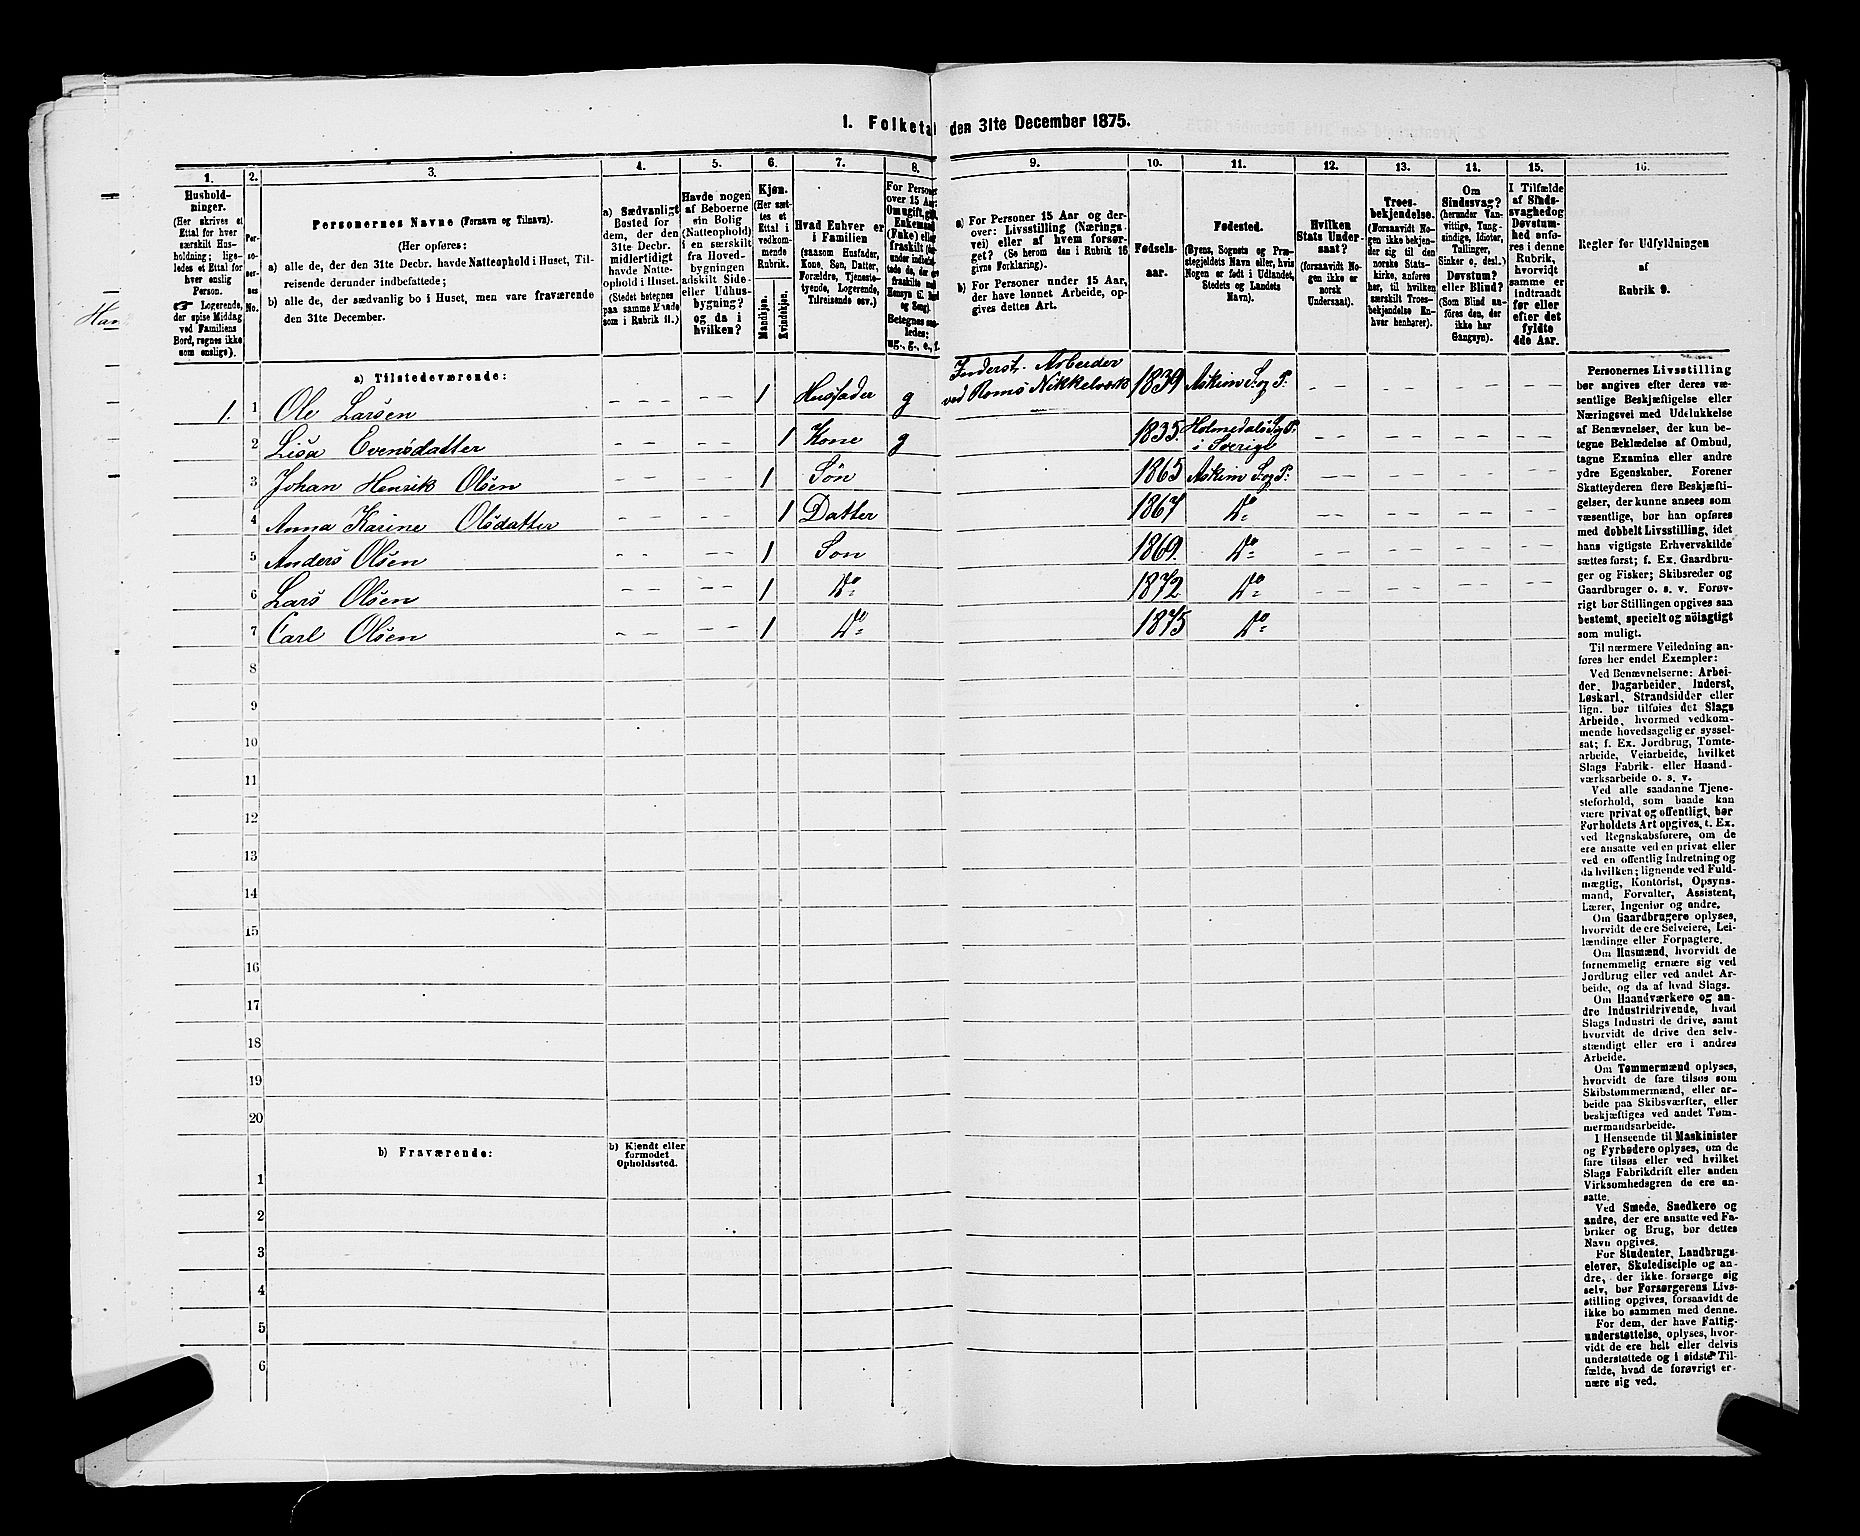 1. Folketal den 31te December 1875.
Han
1.
Husholdninger.
(Her skrives et
Ettal for hver
særskilt Husholdning;
ligeledes et Ettal for
hver enslig
Person.
☛ Logerende,
der spise Middag
ved Familiens
Bord, regnes ikke
som enslige).
2.
Personernes
No.
3.
Personernes Navne (Fornavn og Tilnavn).
(Her opføres:
a) alle de, der den 31te Decbr. havde Natteophold i Huset, Tilreisende
derunder indbefattede;
b) alle de, der sædvanlig bo i Huset, men vare fraværende
den 31te December.
4.
a) Sædvanligt
Bosted for
dem, der den
31te Decbr.
midlertidigt
havde Natteophold
i Huset.
(Stedet betegnes
paa samme Maade
som i Rubrik 11.)
5.
Havde nogen
af Beboerne
ein Bolig
(Natteophold)
i en særskilt
fra Hovedbygningen
adskilt Side-
eller Udhusbygning?
og da i
hvilken?
6.
Kjøn.
(Her sættes
et
Ettal i
vedkommende
Rubrik.
Mandkjøn.
Kvindekjøn.
7.
Hvad Enhver er
i Familien
(saasom Husfader,
Kone, Søn, Datter,
Forældre, Tjenestetyende,
Logerende,
Tilreisende osv.)
8.
For Personer
over 15 Aar
Om ugift, gift,
Enkemand
(Enke) eller
fraskilt
Betegnes saaledes:
ug., g., e., f.
9.
a) For Personer 15 Aar og derover:
Livsstilling (Næringsvei)
eller af hvem forsørget?
(Se herom den i Rubrik 16
givne Forklaring).
b) For Personer under 15 Aar,
der have lønnet Arbeide, opgives
dettes Art.
10.
Fødselsaar.
11.
Fødested.
(Byens, Sognets og Præstegjeldets
Navn eller, hvis
Nogen er født i Udlandet,
Stedets og Landets
Navn).
12.
Hvilken
Stats Undersaat?
(forsaavidt Nogen
ikke er
norsk
Undersaat).
13.
Troesbekjendelse.
(Forsaavidt Nogen
ikke bekjender
sig til den
norske Statskirke,
anføres
her, til hvilken
særskilt Troesbekjendelse
Enhver
henhører).
14.
Om
Sindssvag?
(herunder Vanvittige,
Tungsindige,
Idioter,
Tullinger,
Sinker o. desl.)
Døvstum?
eller Blind?
(Som Blind anføres
den, der
ikke har
Gangsyn).
15.
I Tilfælde
af Sindssvaghed
og
Døvstumhed
anføres
i denne
Rubrik,
hvorvidt
samme er
indtraadt
før eller
efter det
fyldte
4de Aar.
16.
Regler for Udfyldningen
af
Rubrik 9.
a) Tilstedeværende:
1. 1 Ole Larsen – – – – – 1 Husfader g Inderst. Arbeider ved Roms Nikkelværk 1839 Askim S. og P: – – – – – – – –
2 Lisa Evensdatter – – – – 1 Kone g 1835. Holmedals S. og P: i Sverige – – – – – – – –
3 Johan Henrik Olsen – – – – 1 Søn 1865 Askim S. og P: – – – – – – – –
4 Anna Karine Olsdatter – – – – 1 Datter 1867 Do – – – – – – – –
5 Anders Olsen – – – – 1 Son 1869. Do – – – – – – – –
6 Lars Olsen – – – – 1 Do 1872 Do – – – – – – – –
7 Carl Olsen – – – – 1 Do 1875 Do
8
9
10
11
12
13
14
15
16
17
18
19
20
b) Fraværende:
b) Kjendt eller
formodet
Opholdssted.
1
2
3
4
5
6
Personernes Livsstilling
bør angives efter deres væsentlige
Beskjæftigelse eller
Næringsvei med Udelukkelse
af Benævnelser, der kun betegne
Beklædelse af Ombud,
tagne Examina eller andre
ydre Egenskaber. Forener
Skatteyderen flere Beskjæftigelser,
der kunne ansees som
væsentlige, bør han opføres
med dobbelt Livsstilling, idet
hans vigtigste Erhvervskilde
sættes først; f. Ex. Gaardbruger
og Fisker; Skibsreder og
Gaardbruger o. s. v. Forøvrigt
bør Stillingen opgives saa
bestemt, specielt og nöiagtigt
som muligt.
Til nærmere Veiledning anføres
her endel Exempler:
Ved Benævnelserne: Arbeider,
Dagarbeider, Inderst,
Løskarl, Strandsidder eller
lign. bør tilføies det Slags
Arbeide, hvormed vedkommende
hovedsagelig er sysselsat;
f. Ex. Jordbrug, Tomtearbeide,
Veiarbeide, hvilket
Slags Fabrik- eller Haandværksarbeide
o. s. v.
Ved alle saadanne Tjenesteforhold,
som baade kan
være privat og offentligt, bør
Forholdets Art opgives, t. Ex.
ved Regnskabsførere, om de
ere ansatte ved en privat eller
ved en offentlig Indretning og
da hvilken; lignende ved Fuldmægtig,
Kontorist, Opsynsmand,
Forvalter, Assistent,
Lærer, Ingeniør og andre.
Om Gaardbrugere oplyses,
hvorvidt de ere Selveiere, Leilændinge
eller Forpagtere.
Om Husmænd, hvorvidt de
fornemmelig ernære sig ved
Jordbrug eller ved andet Arbeide,
og da af hvad Slags.
Om Haandværkere og andre
Industridrivende, hvad
Slags Industri de drive, samt
hvorvidt de drive den selvstændigt
eller ere i andres
Arbeide.
Om Tømmermænd oplyses,
hvorvidt de fare tilsøs som
Skibstømmermænd, eller arbeide
paa Skibsværfter, eller
beskjæftiges ved andet Tømmermandsarbeide.
I Henseende til Maskinister
og Fyrbødere oplyses, om de
fare tilsøs eller ved hvilket
Slags Fabrikdrift eller anden
Virksomhedsgren de ere ansatte.
Ved Smede, Snedkere og
andre, der ere ansatte ved Fabriker
og Brug, bør dettes
Navn opgives.
For Studenter, Landbrugselever,
Skoledisciple og andre,
der ikke forsørge sig
selv, bør Forsørgerens Livsstilling
opgives, forsaavidt de
ikke bo sammen med denne.
For dem, der have Fattigunderstøttelse,
oplyses, hvorvidt
de ere helt eller delvis
understøttede og i sidste Tilfælde,
hvad de forøvrigt ernære
sig ved.